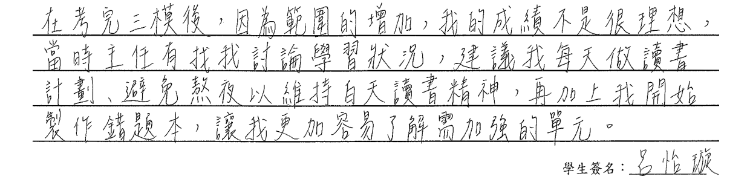 在考完三模後，因為範圍的增加，我的成績不是很理想，
當時主任有找我討論學習狀況，建議我每天做讀書
計劃、避免熬夜以維持白天讀書精神，再加上我開始
製作錯題本，讓我更加容易了解需加強的單元。
學生簽名：呂怡璇